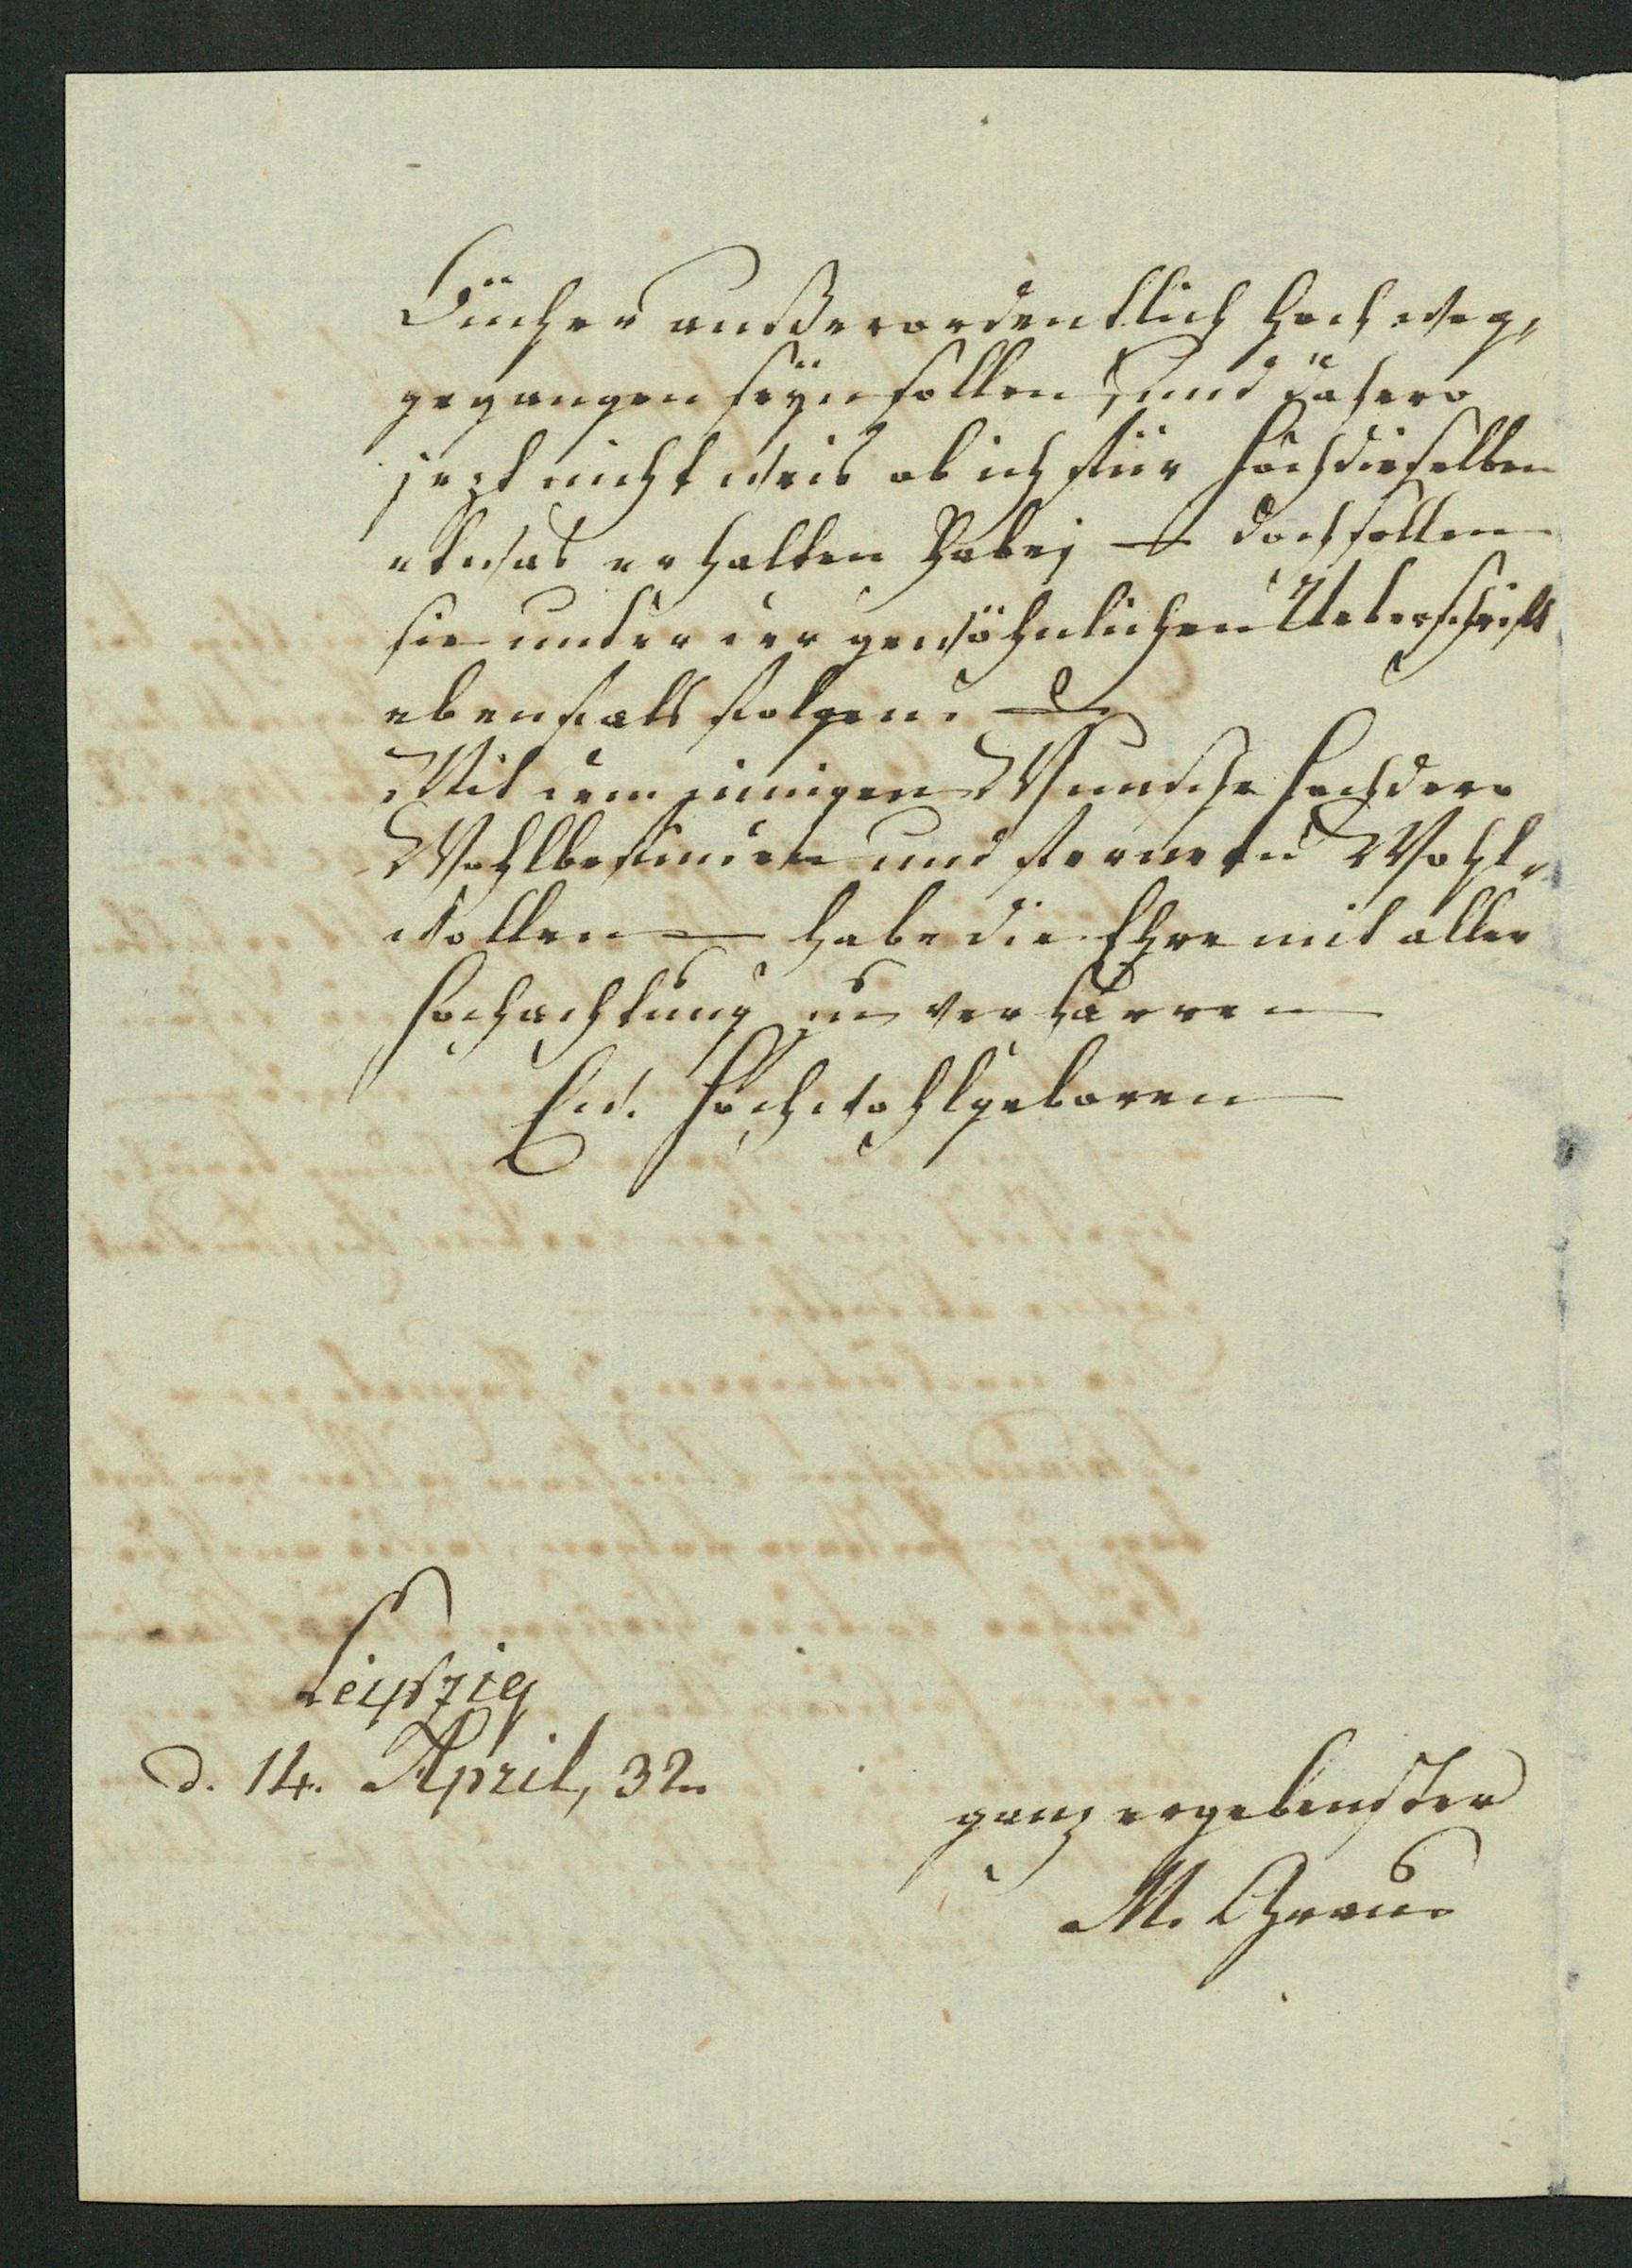 Bücher außerordentlich hoch weg,
gegangen seÿn sollen, und dahero
jezt nicht weis ob ich für Hochdieselben
etwas erhalten habe; — doch sollen
sie unter der gewöhnlichen Ueberschrift
ebenfals folgen. —
Mit dem innigen Wunsche Hochdero
Wohlbefinden und fernern Wohl,
wollen — habe die Ehre mit aller
Hochachtung zu verharren
Ew. Hochwohlgeboren
Leipzig
d. 14. April, 32.
ganz ergebenster
M. Grau.